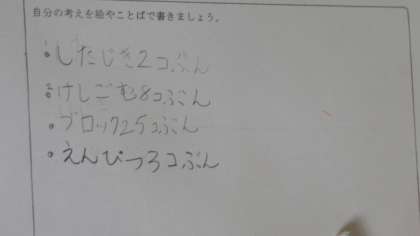 自分の考えを絵やことばで書きましょう。
したじき2コぶん
けしごむ8コぶん
ブロック25コぶん
えんぴつ3コぶん